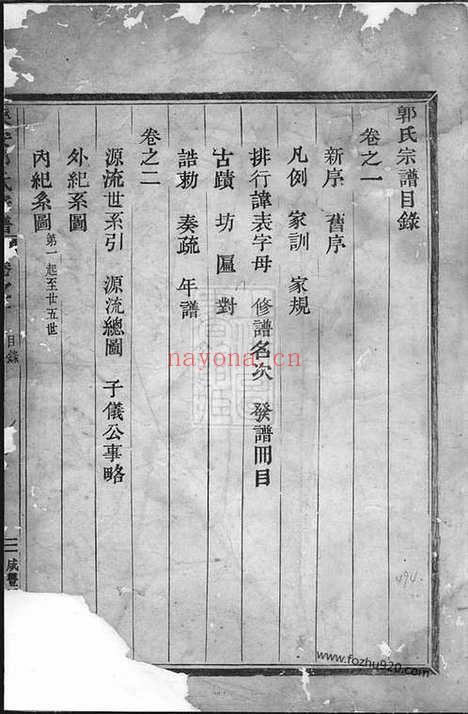 郭氏宗譜目錄
卷之一
新序 舊序
凡例 家訓 家規
排行諱表字母 修譜名次 發譜冊目
古蹟 坊 匾 對
誥勅 奏疏 年譜
卷之二
源流世系引 源流總圖 子儀公事略
外紀系圖
內紀系圖 第一起至廿五世
郭氏宗譜
目錄
咸豐
494
nayona.cn
www.fozhu920.com